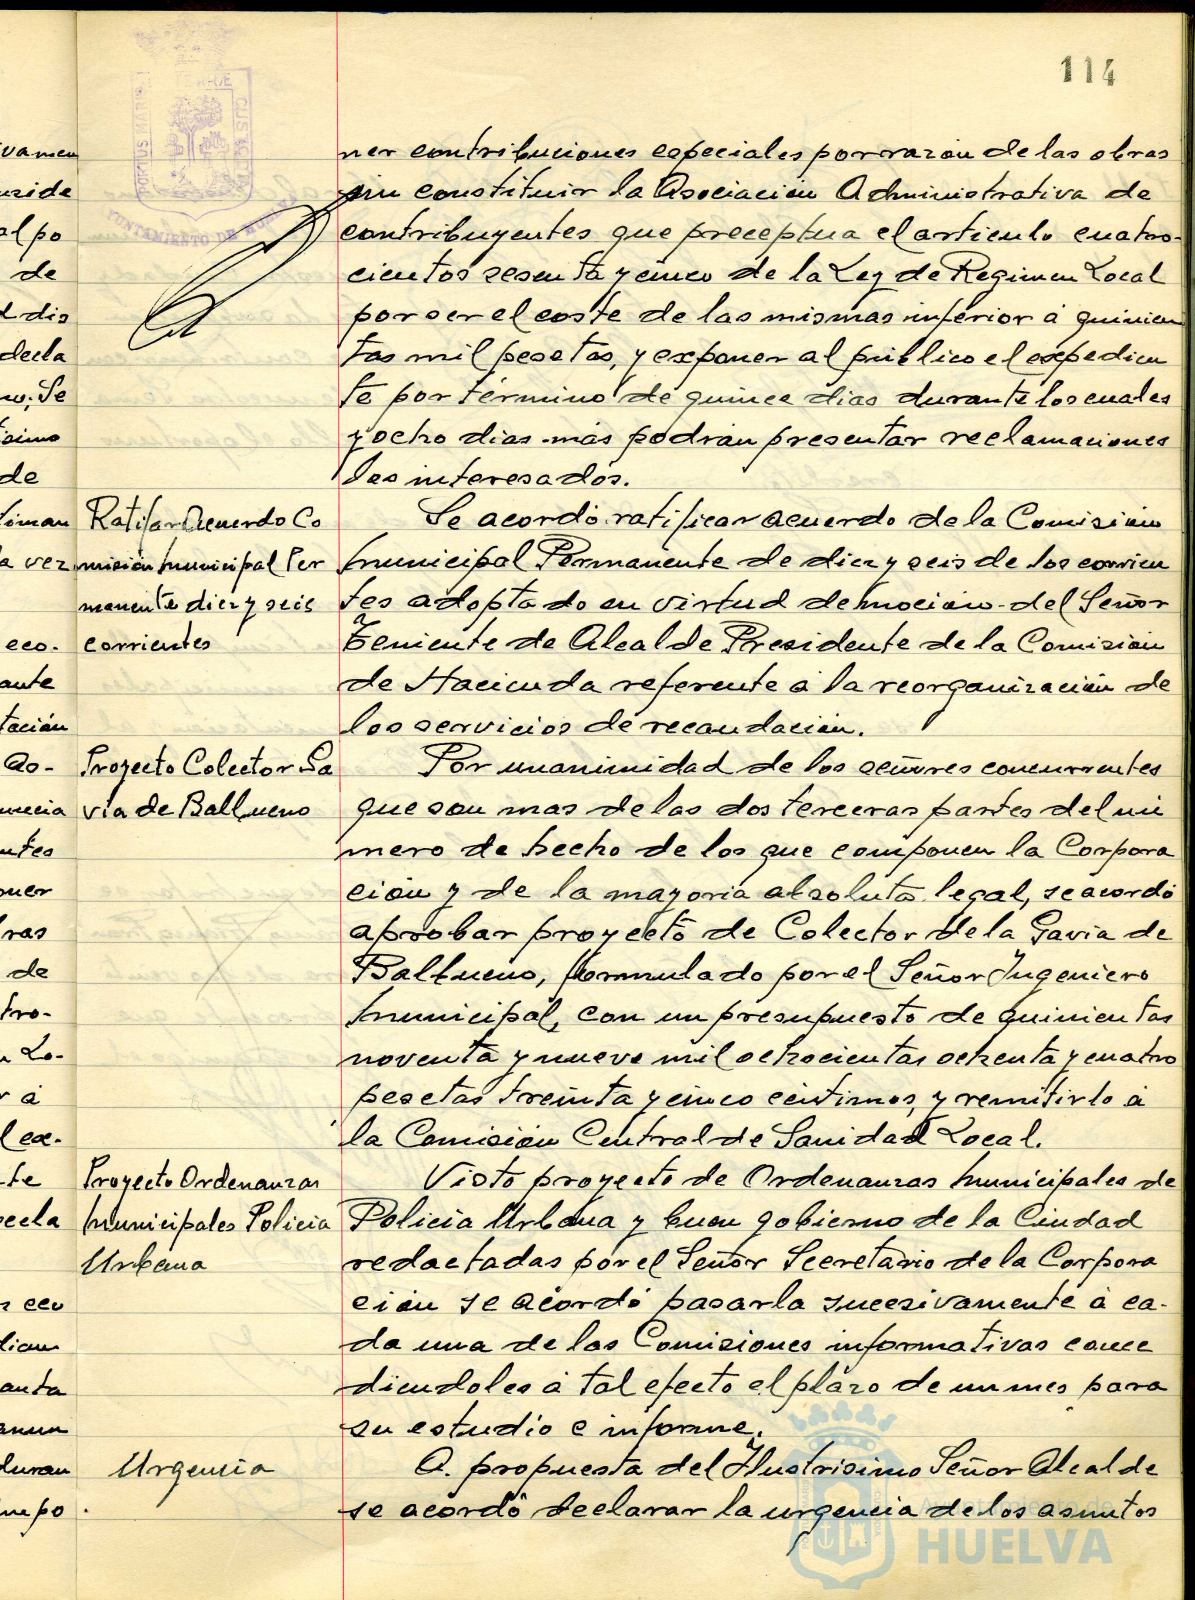 114
ner contribuciones especiales por razón de las obras
sin constituir la Asociación Administrativa de
contribuyentes que preceptua el articulo cuatro-
cientos sesenta y cinco de la Ley de Regimen Local
por ser el coste de las mismas inferior á quinien
tas mil pesetas, y exponer al publico el expedien
te por término de quince dias durante los cuales
y ocho dias mas podrán presentar reclamaciones
los interesados.
Ratificar Acuerdo Co
misión municipal Per
manente diez y seis
corrientes
Se acordó ratificar acuerdo de la Comisión
municipal Permanente de diez y seis de los corrien
tes adoptado en virtud de moción del Señor
Teniente de Alcalde Presidente de la Comisión
de Hacienda referente á la reorganización de
los servicios de recaudación.
Proyecto Colector Ga
via de Ballueno
Por unanimidad de los señores concurrentes
que son mas de las dos terceras partes del nú
mero de hecho de los que componen la Corpora
ción y de la mayoria absoluta legal, se acordó
aprobar proyecto de Colector de la Gavia de
Ballueno, formulado por el Señor Ingeniero
municipal, con un presupuesto de quinientas
noventa y nueve mil ochocientas ochenta y cuatro
pesetas treinta y cinco céntimos, y remitirlo á
la Comisión Central de Sanidad Local.
Proyecto Ordenanzas
municipales Policia
Urbana
Visto proyecto de Ordenanzas municipales de
Policia Urbana y buen gobierno de la Ciudad
redactadas por el Señor Secretario de la Corpora
ción se acordó pasarla sucesivamente á ca-
da una de las Comisiones informativas conce
diendoles á tal efecto el plazo de un mes para
su estudio e informe.
Urgencia
A propuesta del Ilustrisimo Señor Alcalde
se acordó declarar la urgencia de los asuntos
Ayuntamiento de
HUELVA